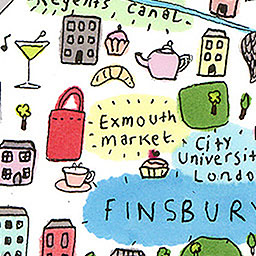 Regents Canal.
Exmouth
Market.
City
Universit
London
FINSBURY